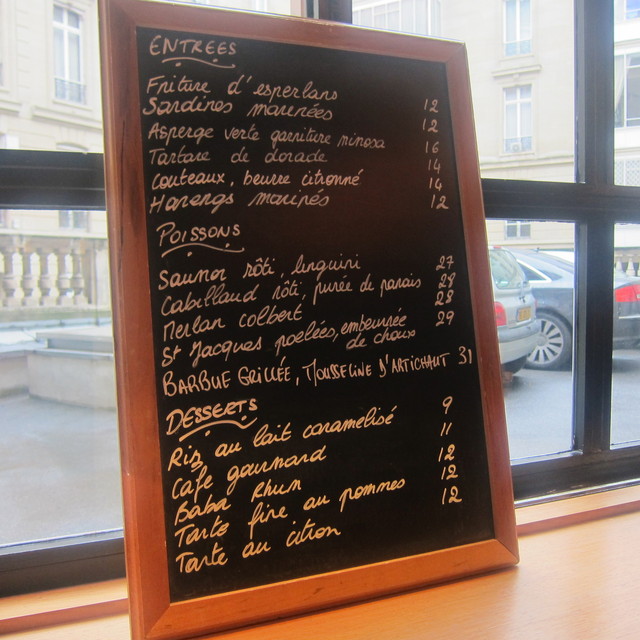 ENTREES
Friture d'esperlans 12
Sardines marinées 12
Asperge verte garniture mimosa 16
Tartare de dorade 14
Couteaux, beurre citronné 14
Harengs marinés 12
POISSONS
Saumon rôti, linguini 27
Cabillaud rôti, purée de panais 28
Merlan colbert 28
St Jacques poelées, embeurrée 29
de choux
BARBUE GRILLÉE, MOUSSELINE D'ARTICHAUT 31
DESSERTS
Riz au lait caramelisé 9
Café gourmand 11
Baba Rhum 12
Tarte fine au pommes 12
Tarte au citron 12